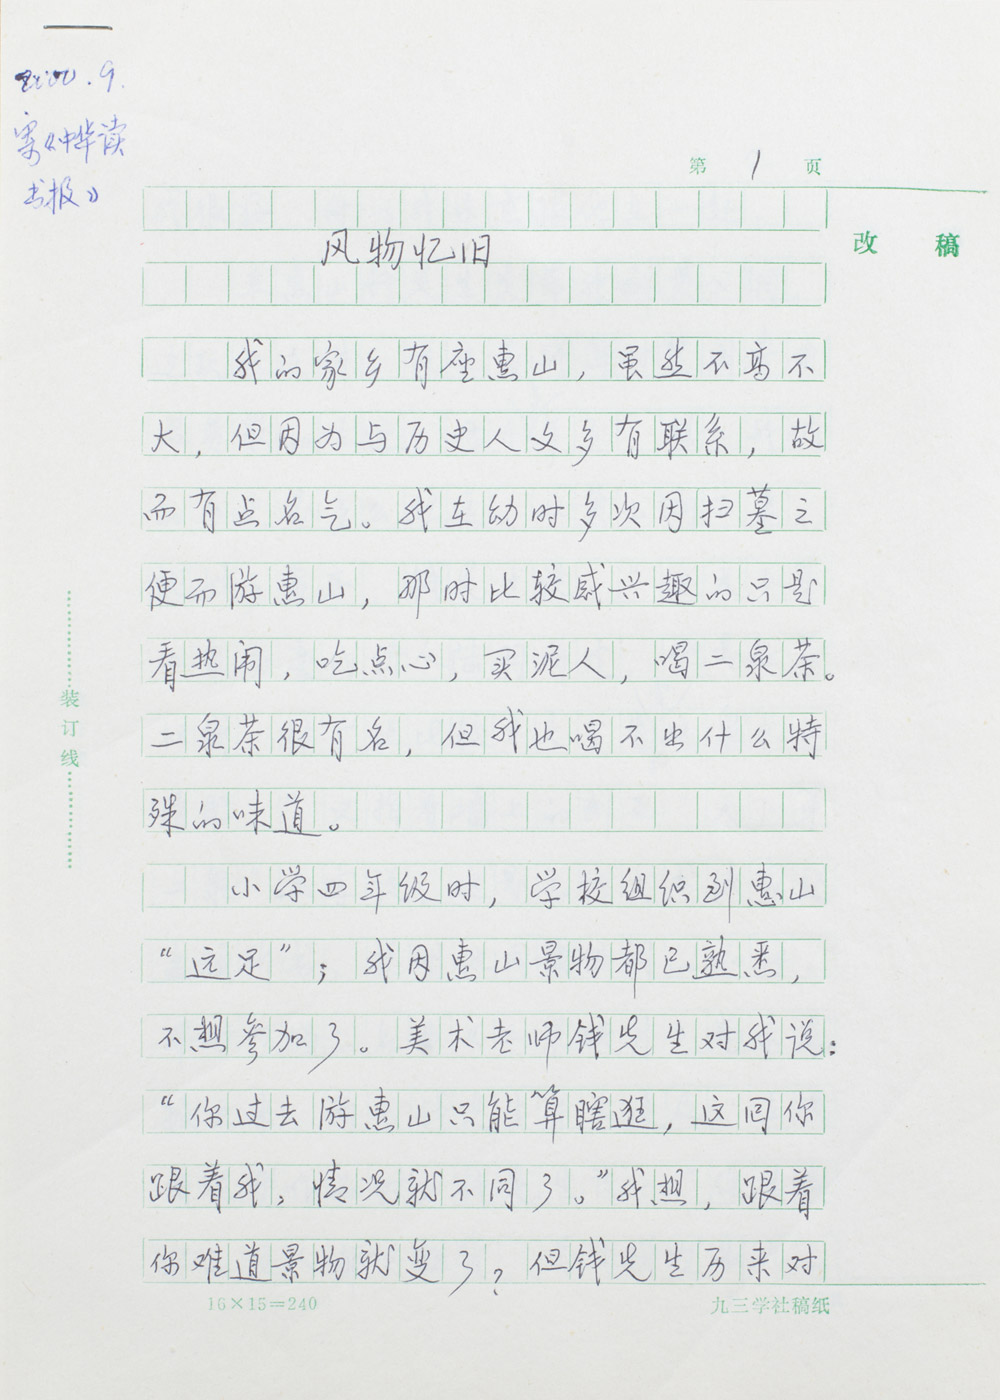 2000.9.
寄《中华读
书报》
第 1 页
改 稿
风物忆旧
我的家乡有座惠山，虽然不高不
大，但因为与历史人文多有联系，故
而有点名气。我在幼时多次因扫墓之
便而游惠山，那时比较感兴趣的只是
看热闹，吃点心，买泥人，喝二泉茶。
二泉茶很有名，但我也喝不出什么特
殊的味道。
小学四年级时，学校组织到惠山
“远足”；我因惠山景物都已熟悉，
不想参加了。美术老师钱先生对我说：
“你过去游惠山只能算瞎逛，这回你
跟着我，情况就不同了。”我想，跟着
你难道景物就变了？但钱先生历来对
装订线
16×15=240
九三学社稿纸